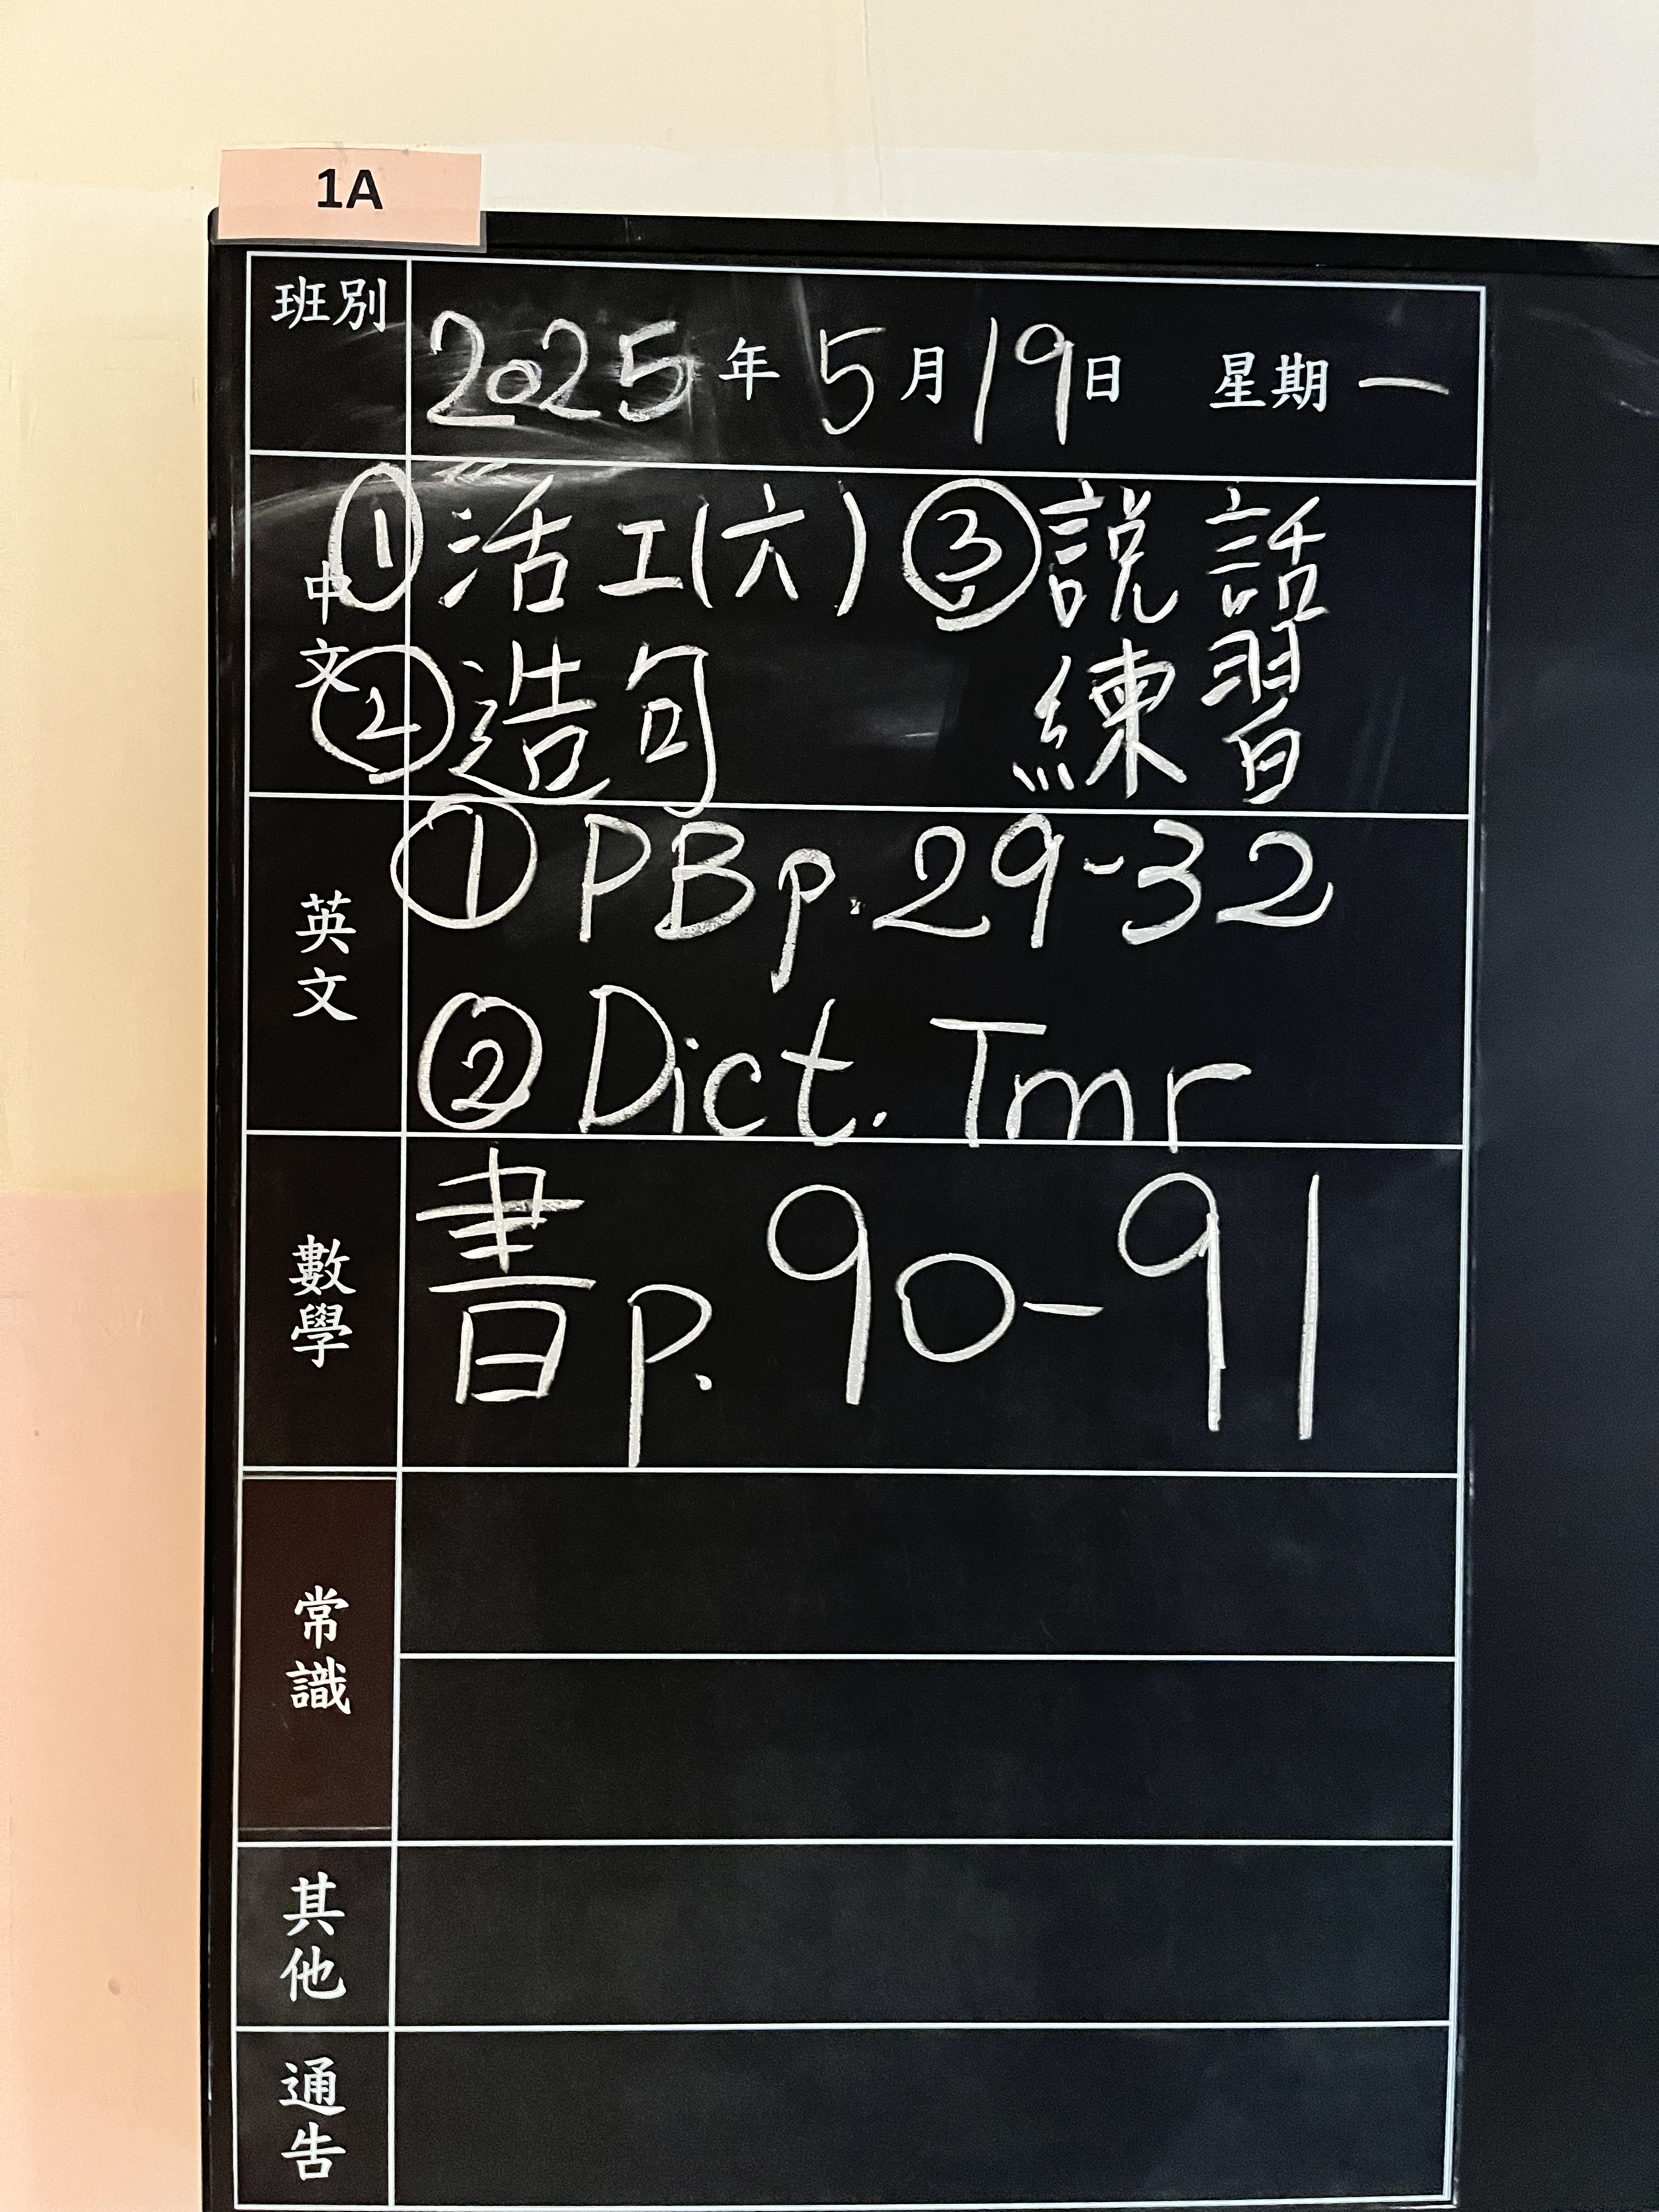 1A
班別
2025年5月19日 星期一
中文
①活工(六) ③説話
②造句 練習
英文
①PBp.29-32
②Dict. Tmr
數學
書p.90-91
常識
其他
通告